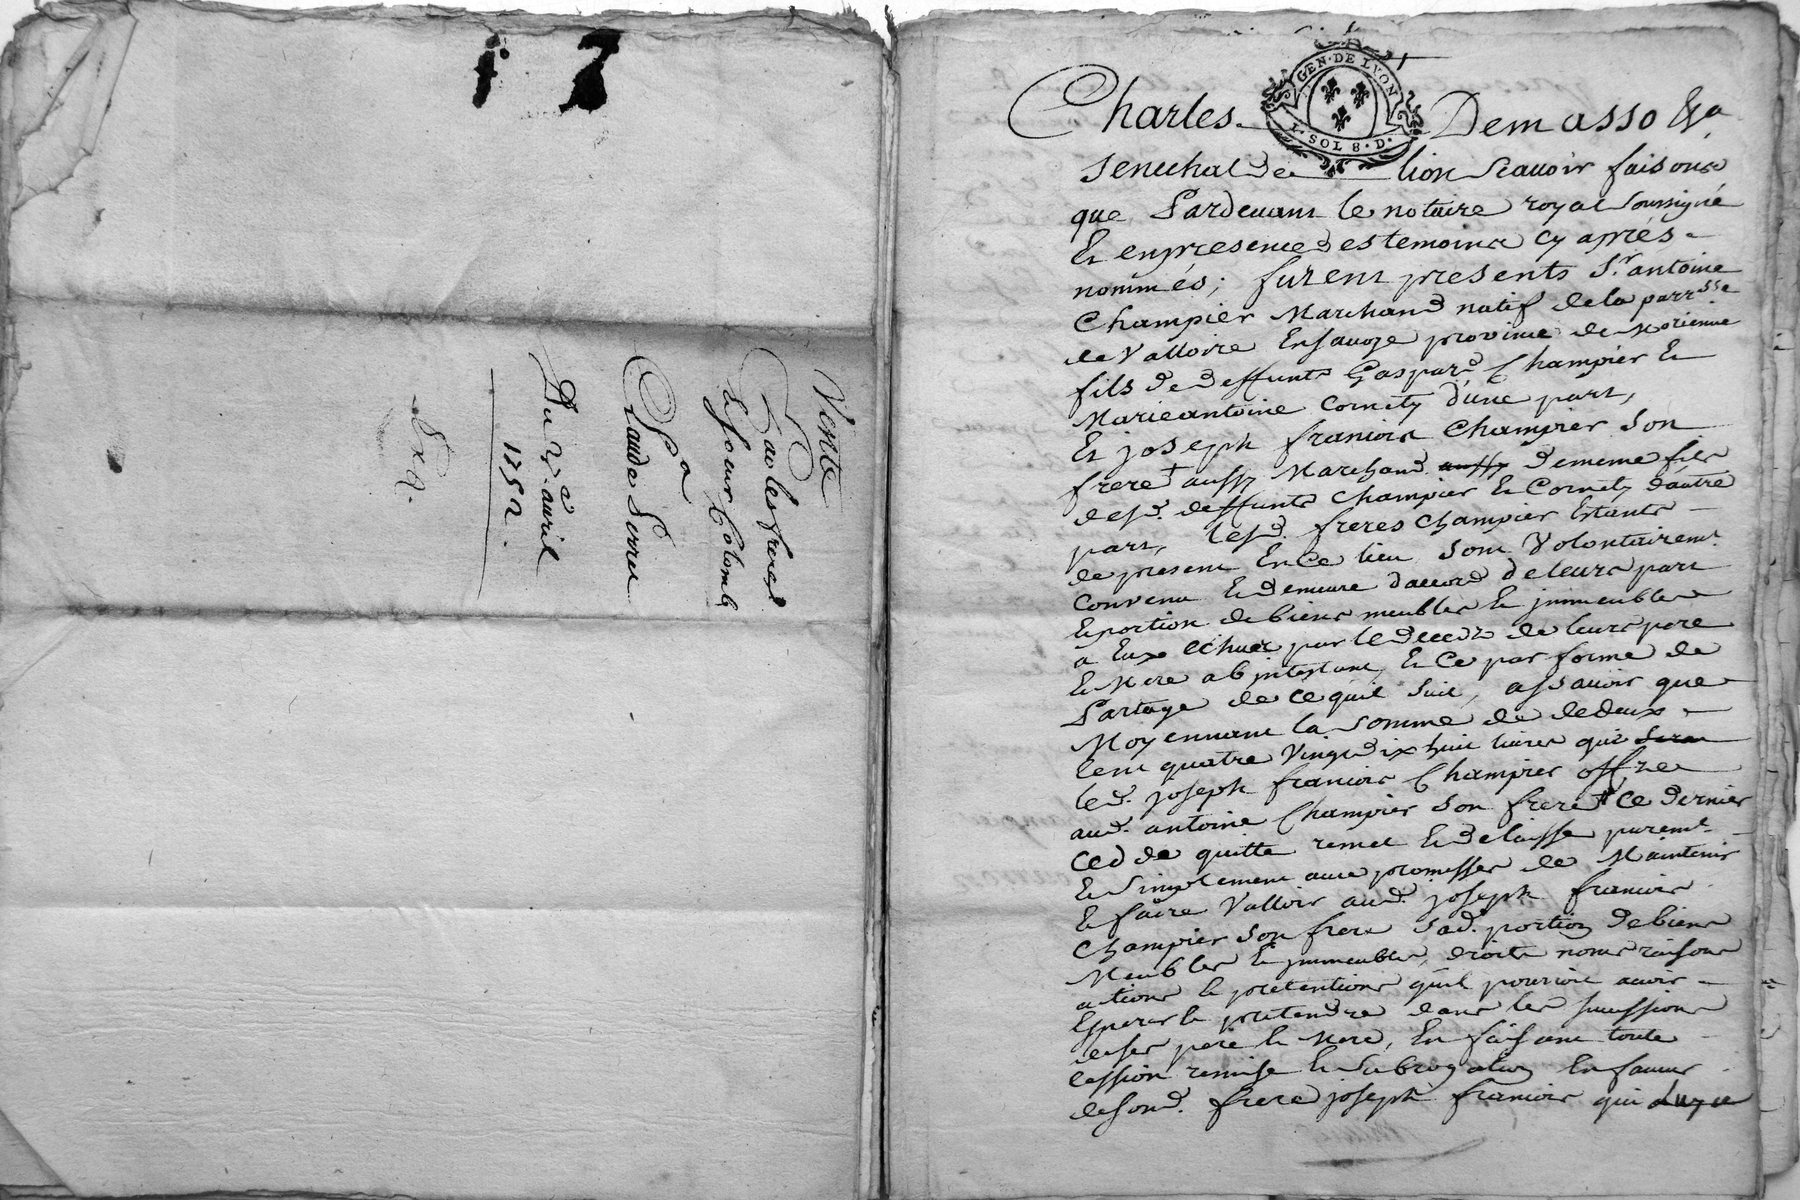 17
Vente
Par les freres
La soeur Colomb
a
Claude Serre
Du 2e auril
1752.
Exq.
GEN·DE LYON
1·SOL 8·D·
Charles Demasso &a
senechal de lion Scauoir faisons
que Pardeuant le notaire royal soussigné
Et en presence des temoins cy aprés
nommés; furent presents Sr. antoine
Champier Marchand natif de la parrsse
de Valloire En sauoye province de Morienne
fils de deffunts Gaspard Champier Et
Marie antoine Cornety d'une part,
Et joseph francois Champier son
frere aussy Marchand aussy de meme fils
desd. deffunts Champier Et Cornety d'autre
part, lesd. freres Champier Estants
de present En Ce lieu sont Volontairemt.
Convenu Et demeuré d'accord de leurs part
Et portion de biens meubles Et jmmeubles
a Eux Echues par le deced de leurs pere
Et Mere ab jntestant, Et Ce par forme de
Partage de Ce quil suit, assauoir que
Moyennant la somme de dedeux
Cent quatre Vingt dix huit liures que
led. joseph francois Champier offre
aud. antoine Champier son frere Ce dernier
Cedde quitte remet Et delaisse puremt.
Et simplement auec promesses de Maintenir
Et faire Valloir aud. joseph francois
Champier son frere sad. portion de biens
Meubles Et jmmeubles, droits noms raisons
actions Et pretentions qu'il pourroit auoir
Esperer Et pretendre dans les successions
de ses pere Et Mere, En faisant toute
Cession remise Et subrogation En faueur
de sond. frere joseph francois qui